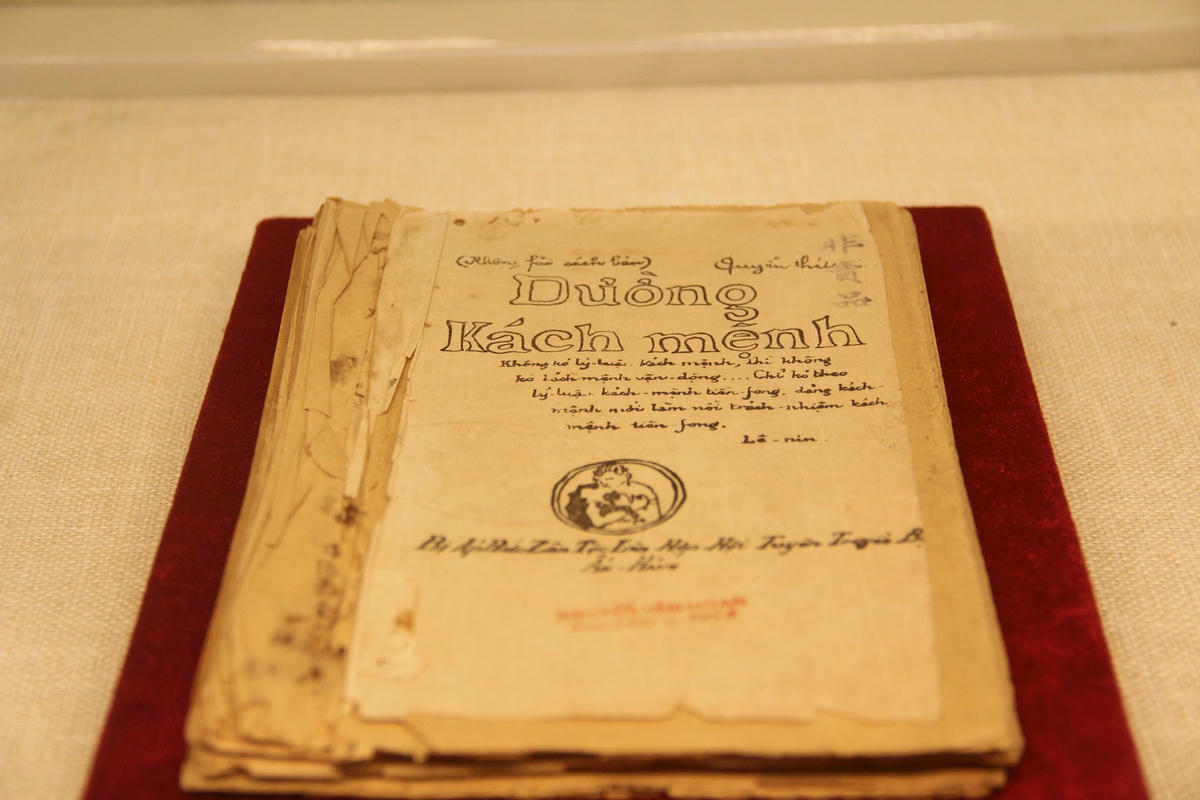 (Không fải sách bán) Quyển thứ
非
賣
品
Dường
Kách mệnh
Không kó lý-luận kách mệnh, thì không
kó kách mệnh vận-động.... Chỉ kó theo
lý-luận kách-mệnh tiền fong, đảng kách-
mệnh mới làm nổi trách-nhiệm kách
mệnh tiền fong.
Lê-nin.
Bị Áp Bức Zân Tộc Liên Hợp Hội Tuyên Truyền Bộ